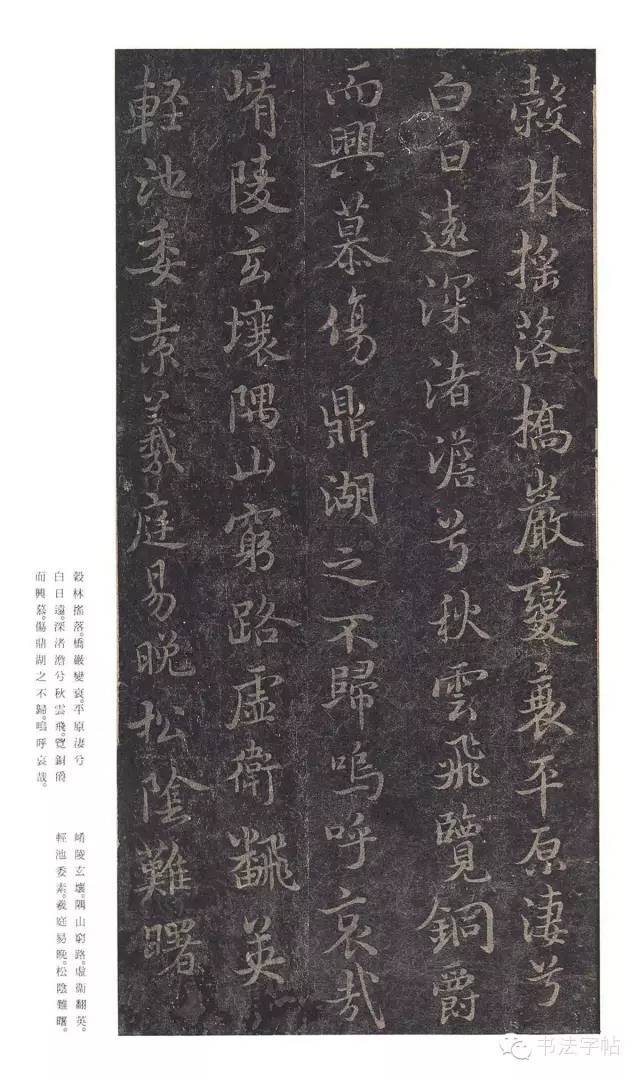 穀林搖落橋巖變衰平原淒兮
白日遠深渚澹兮秋雲飛覽銅爵
而興慕傷鼎湖之不歸嗚呼哀哉
崤陵玄壤隅山窮路虛衛飜英
輕池委素羲庭易晚松陰難曙
穀林搖落。橋巖變衰。平原淒兮
白日遠。深渚澹兮秋雲飛。覽銅爵
而興慕。傷鼎湖之不歸。嗚呼哀哉。
崤陵玄壤。隅山窮路。虛衛翻英。
輕池委素。羲庭易晚。松陰難曙。
书法字帖